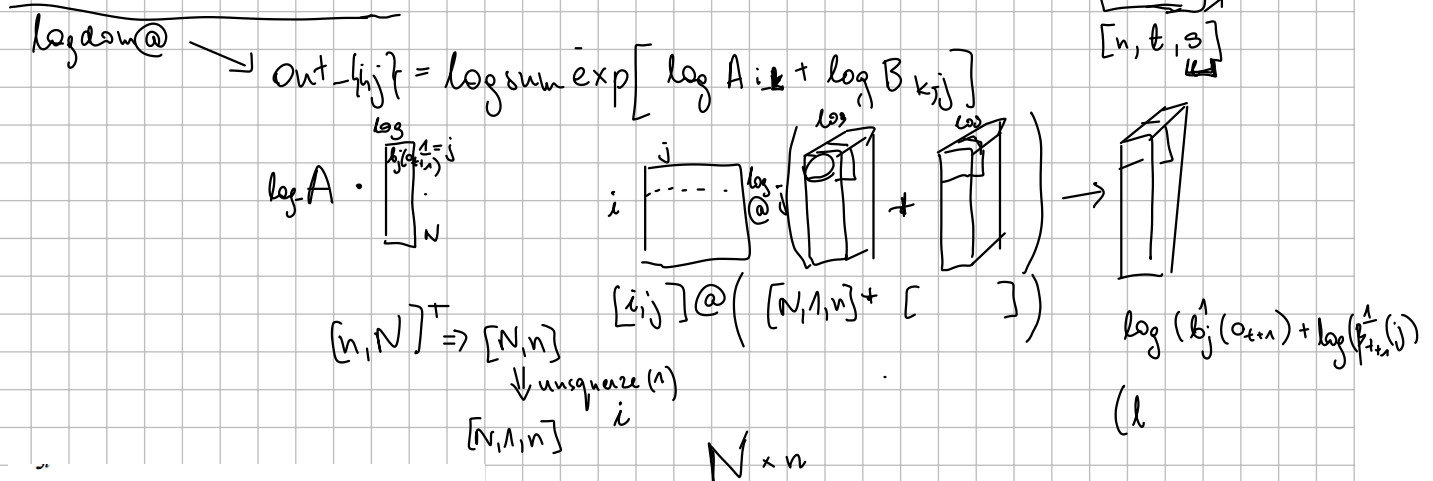 [n, t, s]
logdom@
out_{i,j} = logsumexp[ log A ik + log B k,j ]
log
b_j(o_{t+1}) 1 = j
log A ·
N
j
i
log @ j ( log + log ) →
[i,j] @ ( [N,1,n] + [ ] )
[n,N]^T ⇒ [N,n]
⇓ unsqueeze(1)
i
[N,1,n]
N × n
log (b_j^1(o_{t+1}) + log(β_{t+1}^1(j)
(l